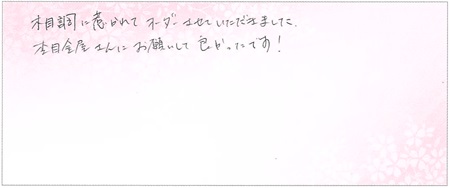 木目調に惹かれてオーダーさせていただきました。
杢目金屋さんにお願いして良かったです!